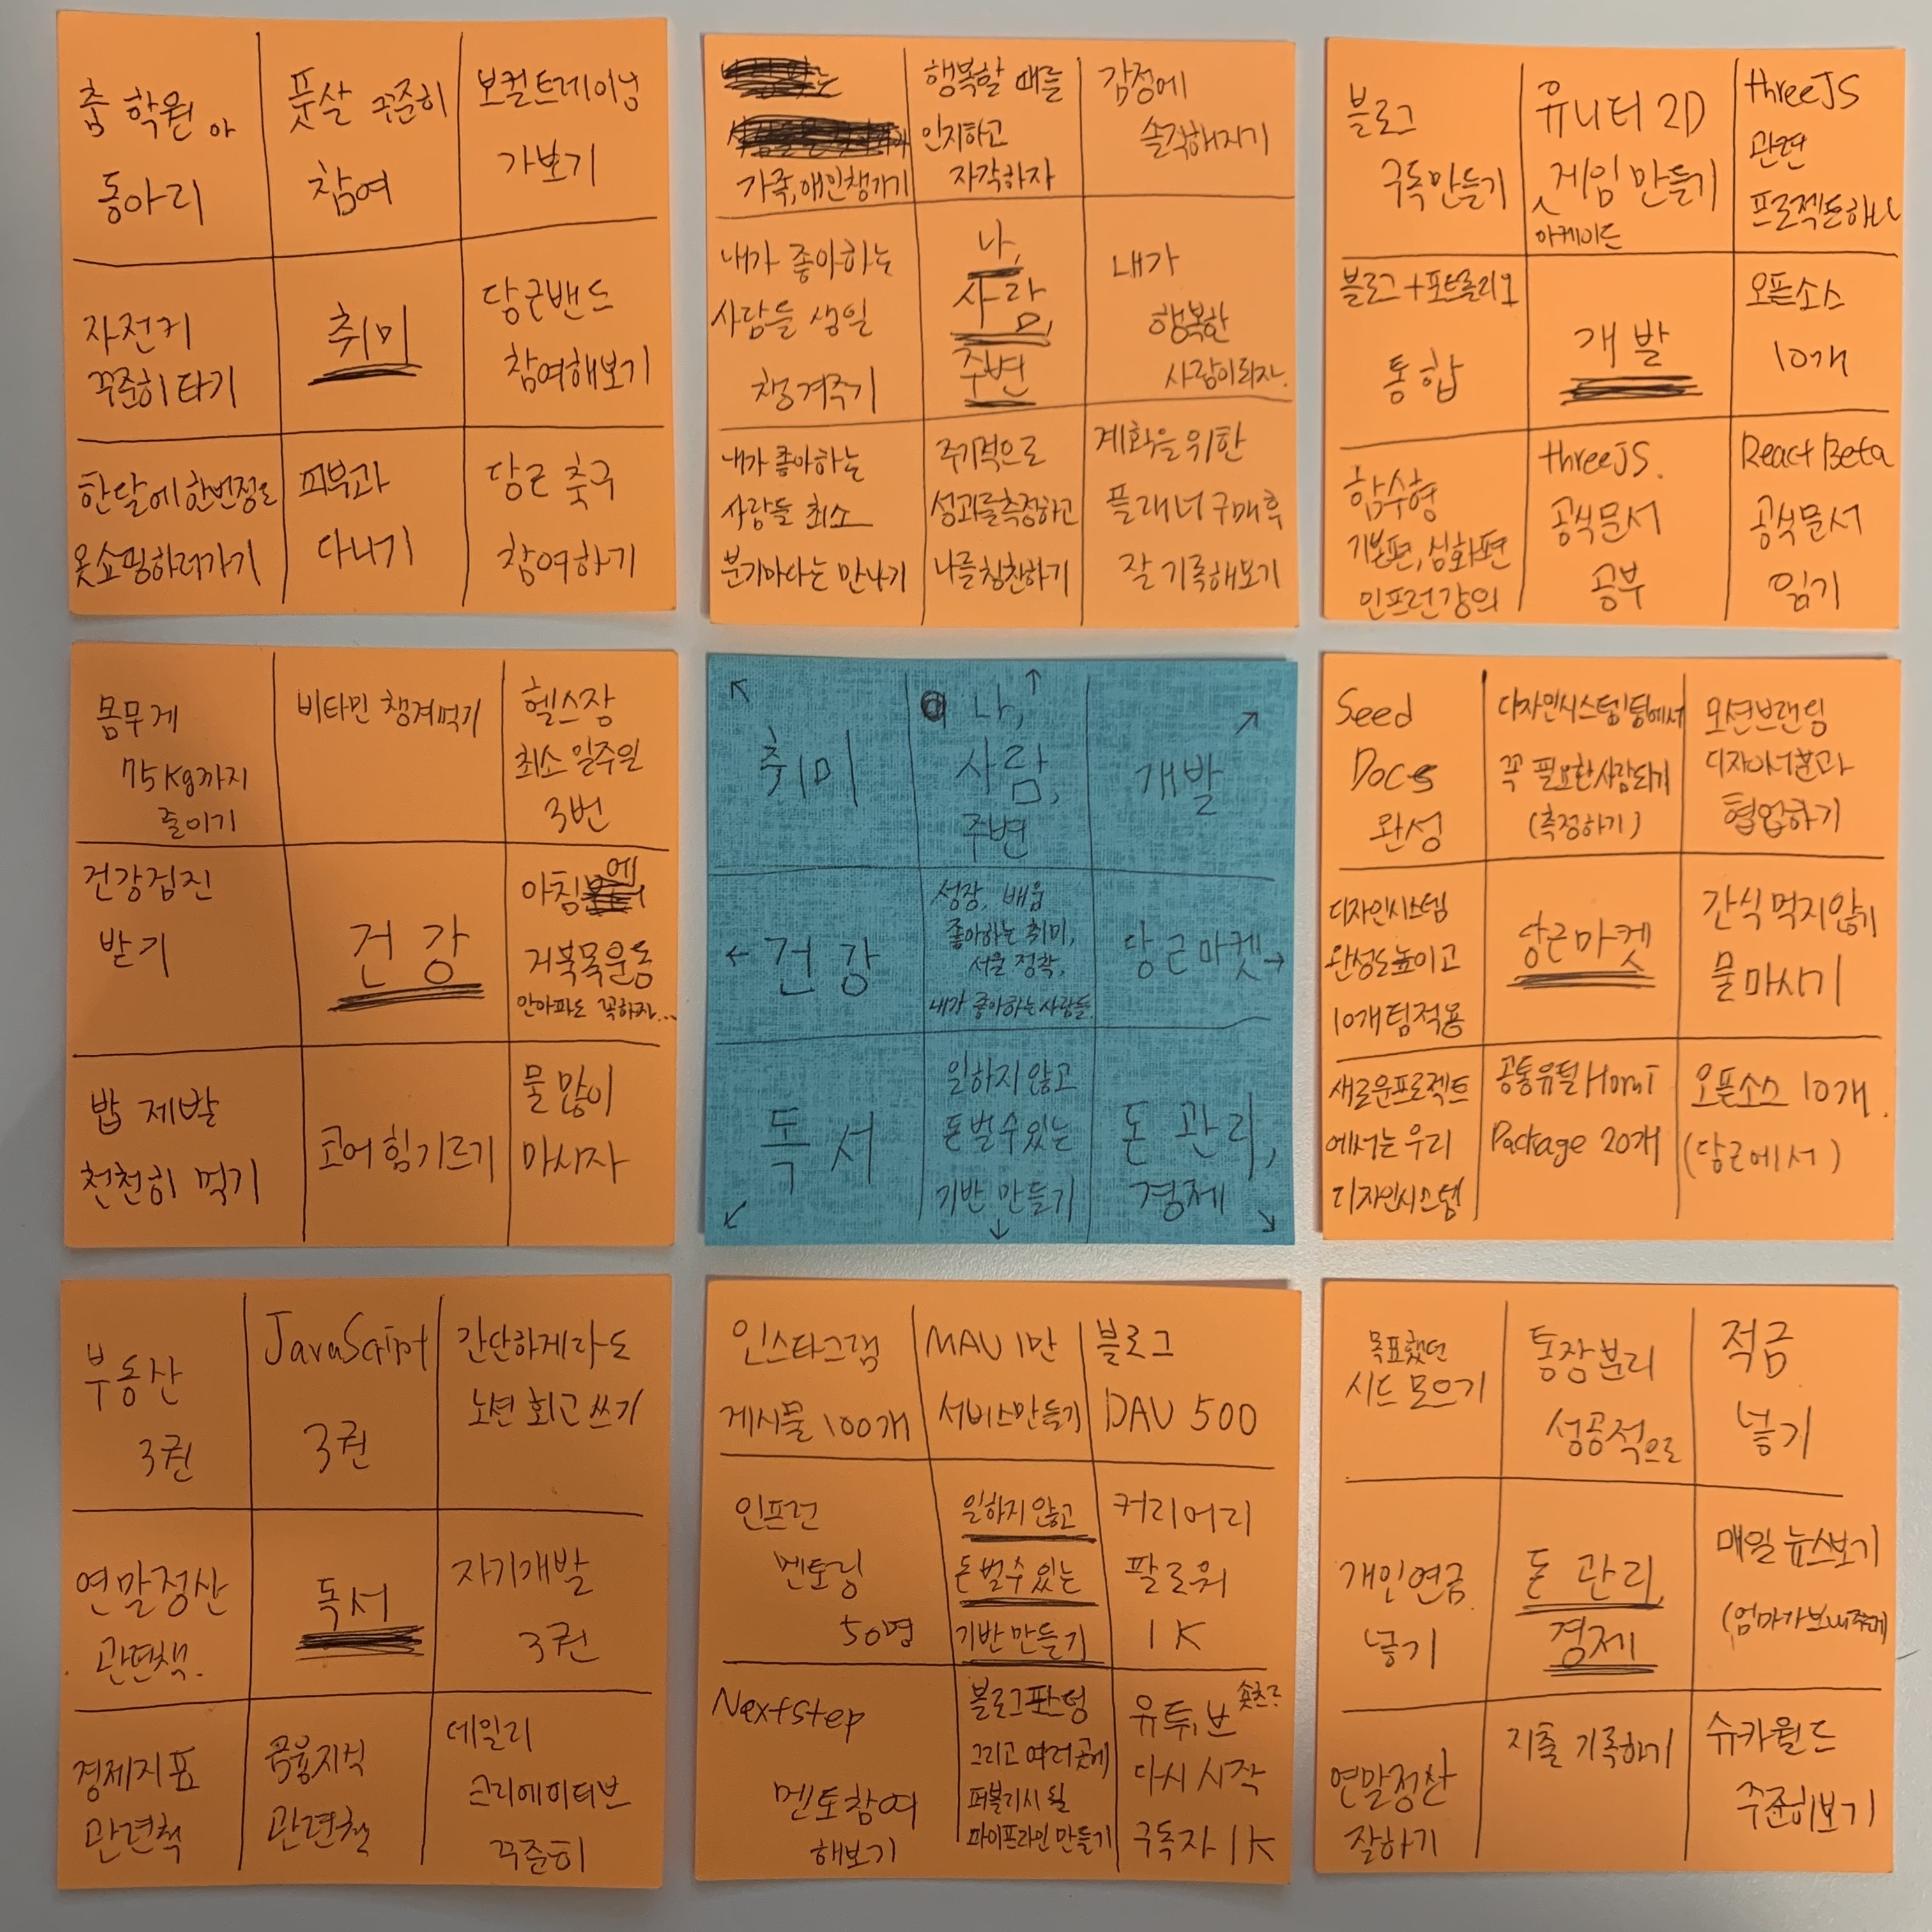 춤 학원 or
동아리
풋살 꾸준히
참여
보컬트레이닝
가보기
자전거
꾸준히 타기
취미
당근밴드
참여해보기
한달에 한번정도
옷쇼핑하러가기
피부과
다니기
당근 축구
참여하기
가족, 애인챙기기
행복할 때를
인지하고
자각하자
감정에
솔직해지기
내가 좋아하는
사람들 생일
챙겨주기
나,
사람,
주변
내가
행복한
사람이되자.
내가 좋아하는
사람들 최소
분기마다는 만나기
주기적으로
성과를측정하고
나를칭찬하기
계획을 위한
플래너 구매후
잘 기록해보기
블로그
구독만들기
유니티 2D
게임 만들기
아케이드
threeJS
관련
프로젝트하나
블로그+포트폴리오
통합
개발
오픈소스
10개
함수형
기본편, 심화편
인프런강의
threeJS.
공식문서
공부
React Beta
공식문서
읽기
몸무게
75kg까지
줄이기
비타민 챙겨먹기
헬스장
최소 일주일
3번
건강검진
받기
건강
아침에
거북목운동
안아파도 꼭하자...
밥 제발
천천히 먹기
코어 힘 기르기
물 많이
마시자
취미
나,
사람,
주변
개발
건강
성장, 배움
좋아하는 취미,
서울 정착,
내가 좋아하는사람들.
당근마켓
독서
일하지 않고
돈 벌수 있는
기반 만들기
돈 관리,
경제
Seed
Docs
완성
디자인시스템팀에서
꼭 필요한사람되기
(측정하기)
모션브랜딩
디자이너분과
협업하기
디자인시스템
완성도높이고
10개팀적용
당근마켓
간식 먹지않기
물 마시기
새로운프로젝트
에서는 우리
디자인시스템
공통유틸 Hom
Package 20개
오픈소스 10개.
(당근에서)
부동산
3권
JavaScript
3권
간단하게라도
노션 회고 쓰기
연말정산
관련책.
독서
자기개발
3권
경제지표
관련책
금융지식
관련책
데일리
크리에이티브
꾸준히
인스타그램
게시물 100개
MAU 1만
서비스만들기
블로그
DAU 500
인프런
멘토링
50명
일하지 않고
돈 벌수 있는
기반 만들기
커리어리
팔로워
1K
Nextstep
멘토참여
해보기
블로그판텅
그리고 여러곳에
퍼블리시 될
파이프라인 만들기
유튜브 숏츠로
다시 시작
구독자 1K
목표했던
시드 모으기
통장분리
성공적으로
적금
넣기
개인연금
넣기
돈 관리,
경제
매일 뉴스보기
(엄마가보내주는)
연말정산
잘하기
지출 기록하기
슈카월드
꾸준히보기